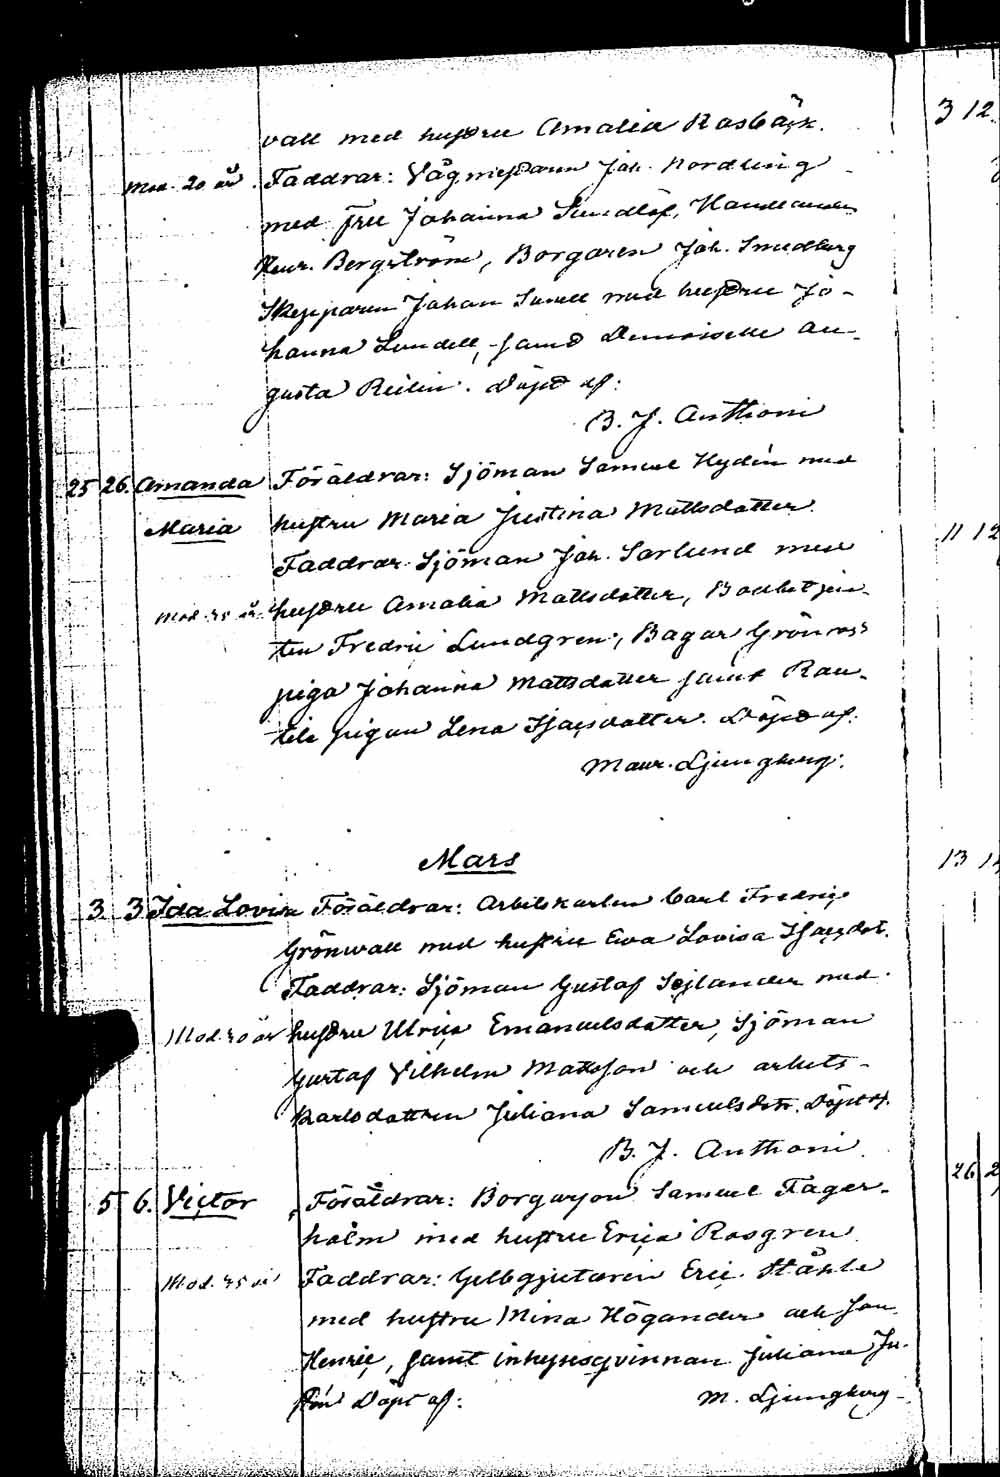 vall med hustru Amalia Rosbäck.
Mod. 20 år. Faddrar: Vågmästaren Joh. Nordling
med fru Johanna Sundlöf, Handlanden
Henr. Bergström, Borgaren Joh. Smedberg
Skepparen Johan Sunell med hustru Jo-
hanna Lundell, samt Demoiselle Au-
gusta Reilin. Döpt af:
B. J. Anthoni
25 26. Amanda Föräldrar: Sjöman Samuel Hydén med
Maria hustru Maria Justina Mattsdotter.
Faddrar: Sjöman Joh. Sarlund med
Mod. 35 år. hustru Amalia Mattsdotter,
Fredric Lundgren, Bagar Grönroos
piga Johanna Mattsdotter samt
pigan Lena Isacsdotter. Döpt af:
Maur. Ljungberg.
Mars
3 3 Ida Lovisa Föräldrar: Arbetskarlen Carl Fredric
Grönwall med hustru Ewa Lovisa Isacsdot.
Faddrar: Sjöman Gustaf Sejlander med
Mod. 30 år hustru Ulrica Emanuelsdotter, Sjöman
Gustaf Vilhelm Mattsson och arbets-
karlsdottren Juliana Samuelsdotr. Döpt af.
B. J. Anthoni.
5 6. Victor Föräldrar: Borgarson Samuel Fager-
holm med hustru Erica Rosgren.
Mod. 35 år Faddrar: Gelbgjutaren Eric Ståhle
med hustru Mina Högander och son
Henric, samt inhysesqvinnan Juliana Ju-
Döpt af: M. Ljungberg
3 12.
11 12
13
26 2